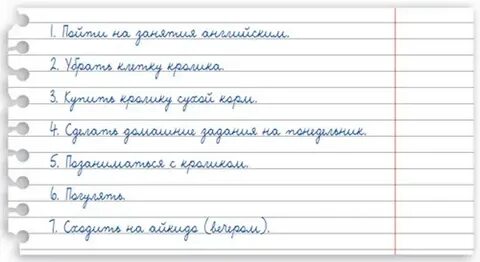 1. Пойти на занятия английским.
2. Убрать клетку кролика.
3. Купить кролику сухой корм.
4. Сделать домашние задания на понедельник.
5. Позаниматься с кроликом.
6. Погулять.
7. Сходить на айкидо (вечером).